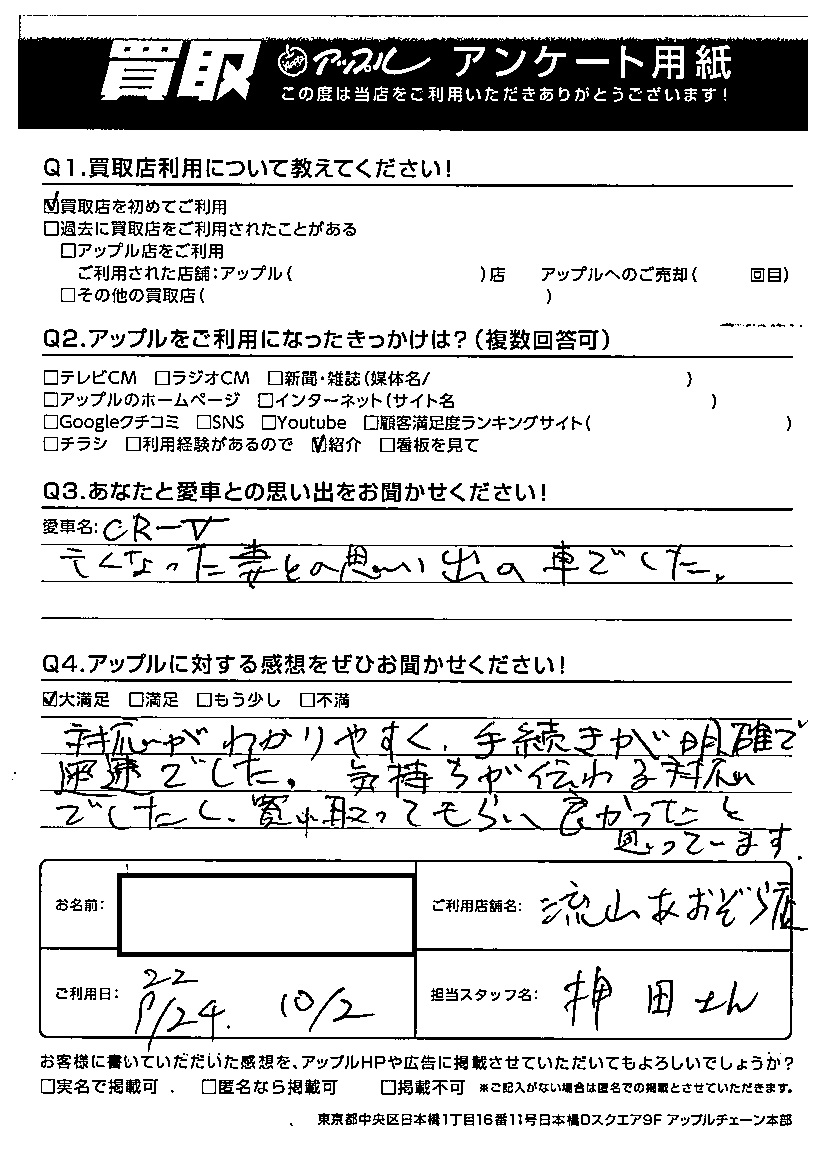 買取 アップル アンケート用紙
この度は当店をご利用いただきありがとうございます!
Q1.買取店利用について教えてください!
☑買取店を初めてご利用
□過去に買取店をご利用されたことがある
□アップル店をご利用
ご利用された店舗:アップル( )店 アップルへのご売却( 回目)
□その他の買取店( )
Q2.アップルをご利用になったきっかけは?(複数回答可)
□テレビCM □ラジオCM □新聞・雑誌(媒体名/ )
□アップルのホームページ □インターネット(サイト名 )
□Googleクチコミ □SNS □Youtube □顧客満足度ランキングサイト( )
□チラシ □利用経験があるので ☑紹介 □看板を見て
Q3.あなたと愛車との思い出をお聞かせください!
愛車名: CR-V
亡くなった妻との思い出の車でした。
Q4.アップルに対する感想をぜひお聞かせください!
☑大満足 □満足 □もう少し □不満
対応がわかりやすく、手続きが明確で
迅速でした。気持ちが伝わる対応
でしたし、買い取ってもらい良かったと
思っています。
お名前:
ご利用店舗名: 流山あおぞら店
ご利用日: 22 9/24. 10/2
担当スタッフ名: 押田さん
お客様に書いていただいた感想を、アップルHPや広告に掲載させていただいてもよろしいでしょうか?
□実名で掲載可 . □匿名なら掲載可 □掲載不可 ※ご記入がない場合は匿名での掲載とさせていただきます。
東京都中央区日本橋1丁目16番11号日本橋Dスクエア9F アップルチェーン本部